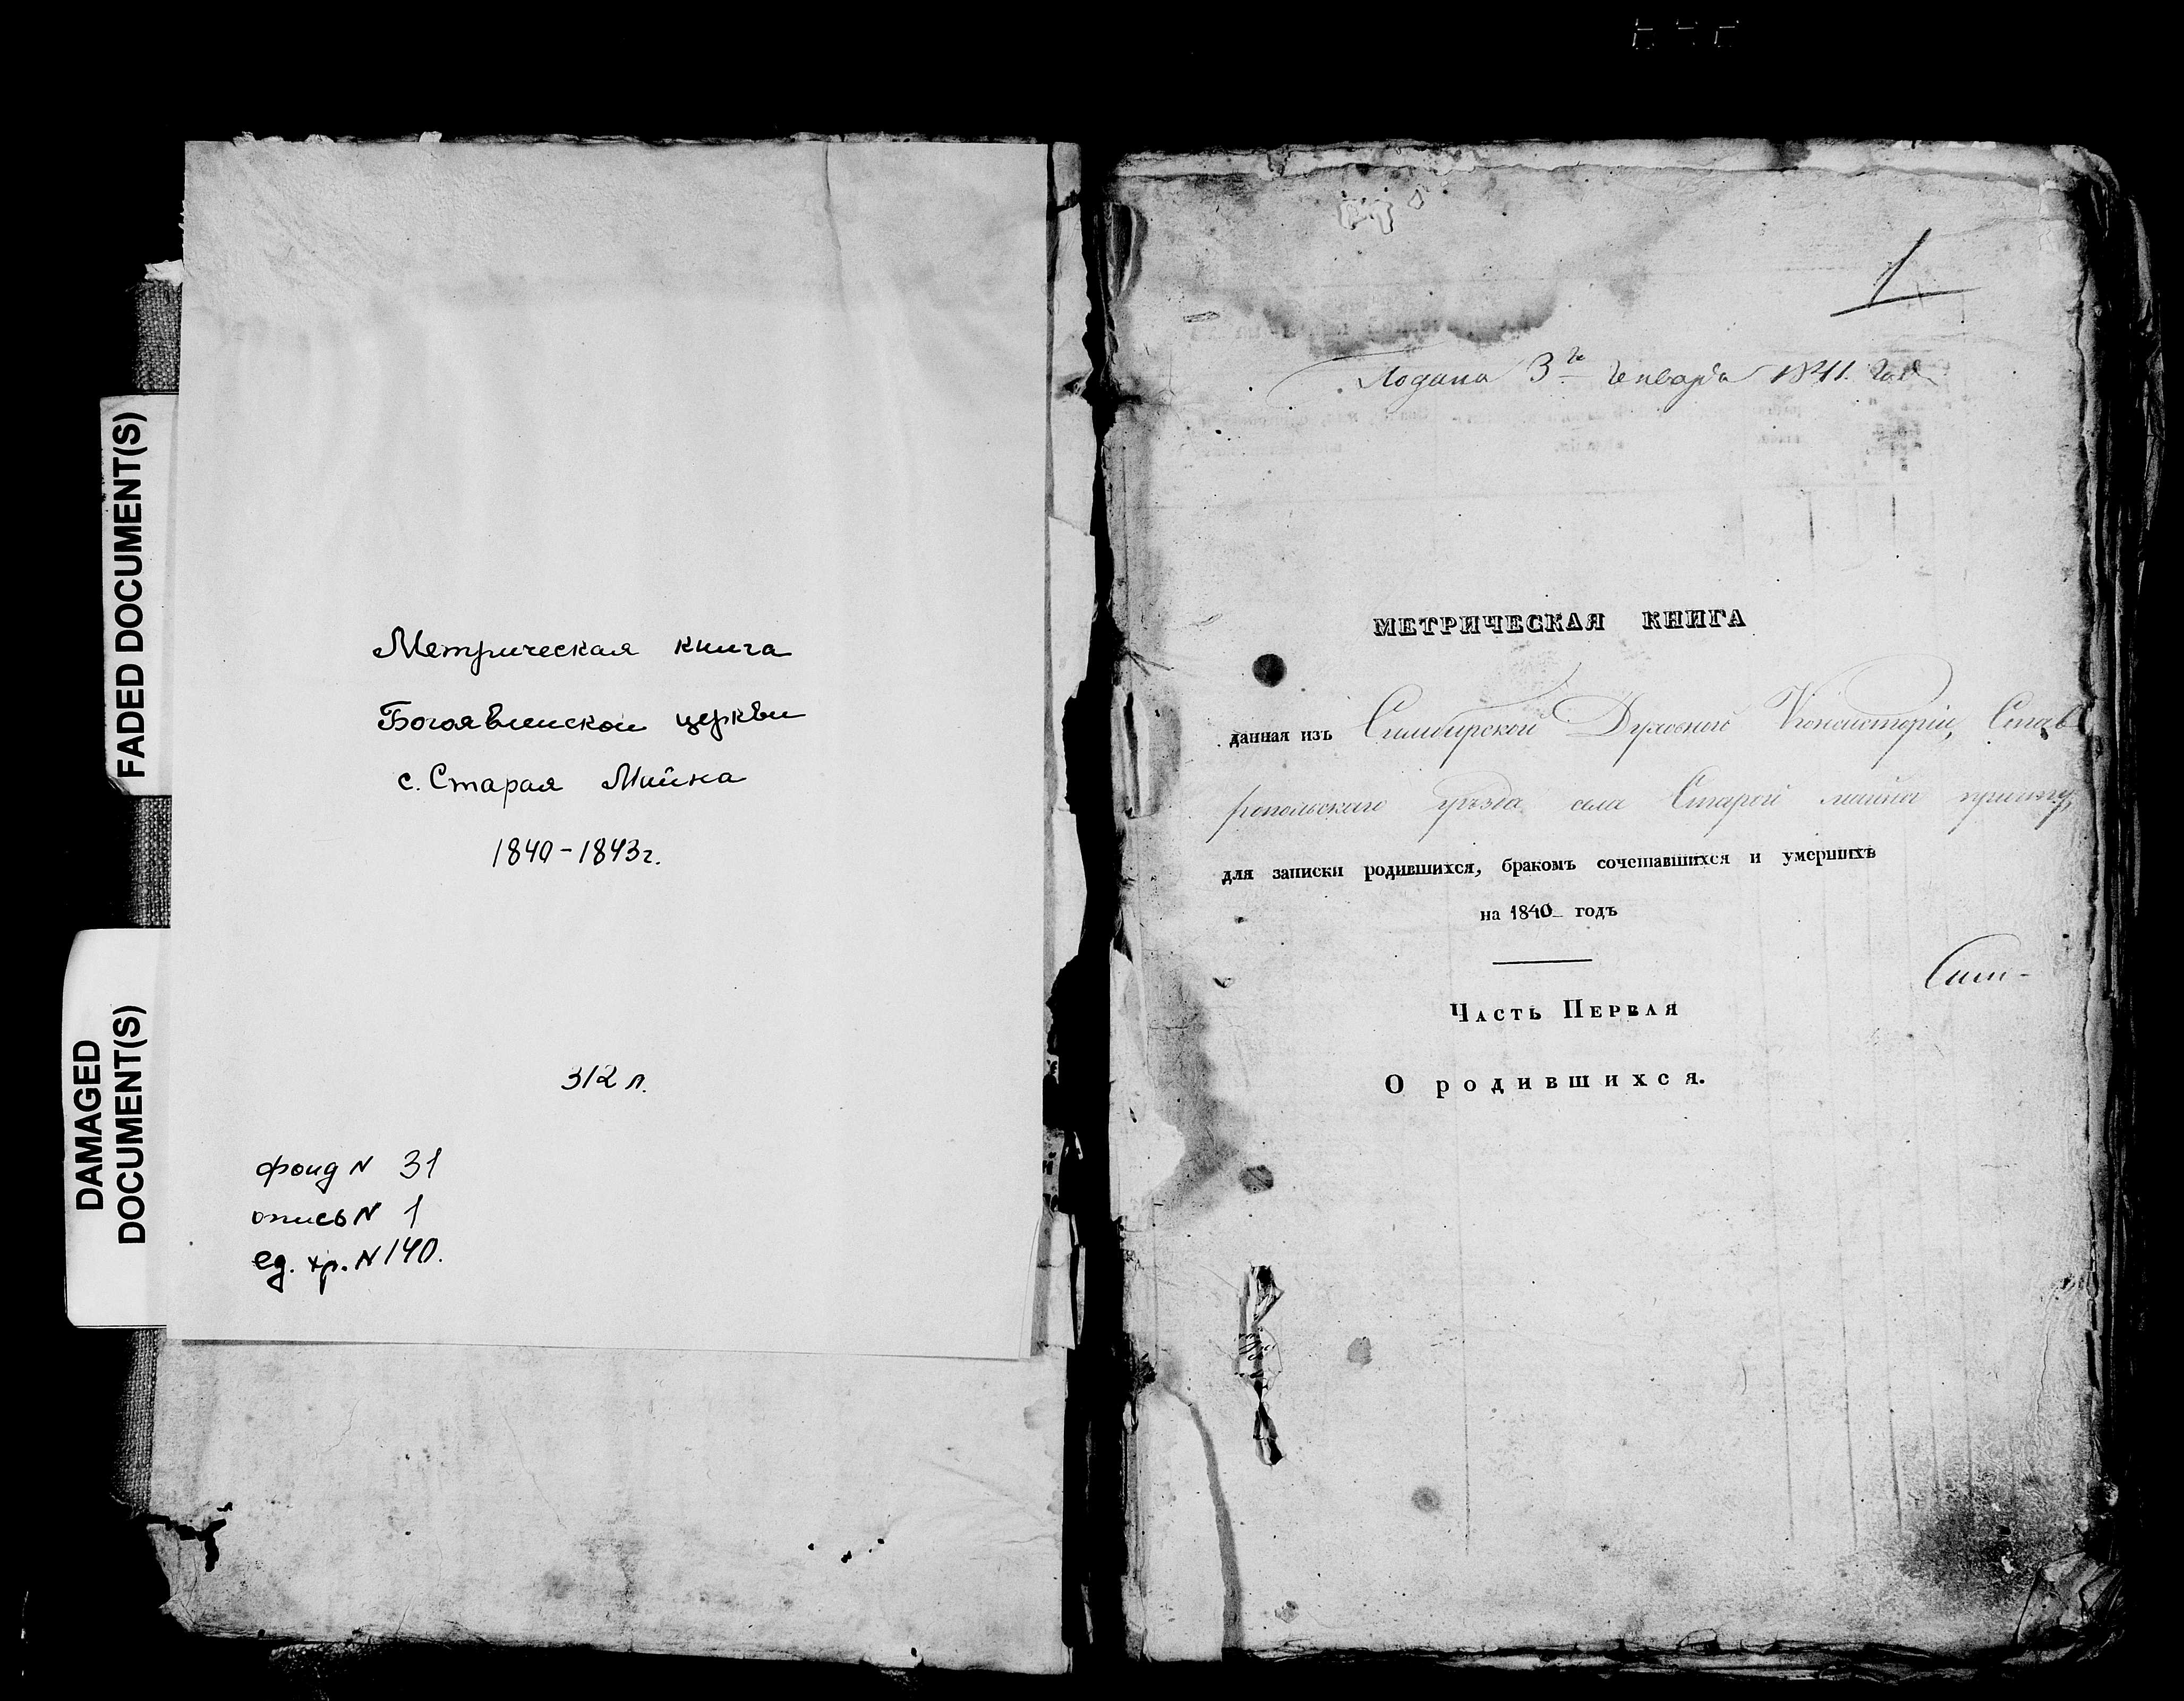 FADED DOCUMENT(S)
DAMAGED
DOCUMENT(S)
Метрическая книга
Богоявленской церкви
с. Старая Майна
1840-1843г.
312 л.
фонд N 31
опись N 1
ед. хр. N 140.
1
Подана 3го Генваря 1841. года
МЕТРИЧЕСКАЯ КНИГА
данная изъ Симбирской Духовной Консисторіи, Став
ропольскаго уѣзда села Старой майны причту,
для записки родившихся, бракомъ сочетавшихся и умершихъ
на 1840 годъ
Сим-
Часть Первая
О родившихся.